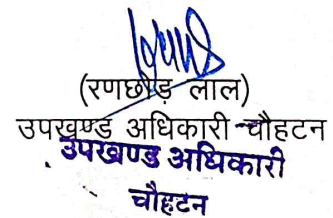 (रणछोड़ लाल)
उपखण्ड अधिकारी चौहटन
उपखण्ड अधिकारी
चौहटन